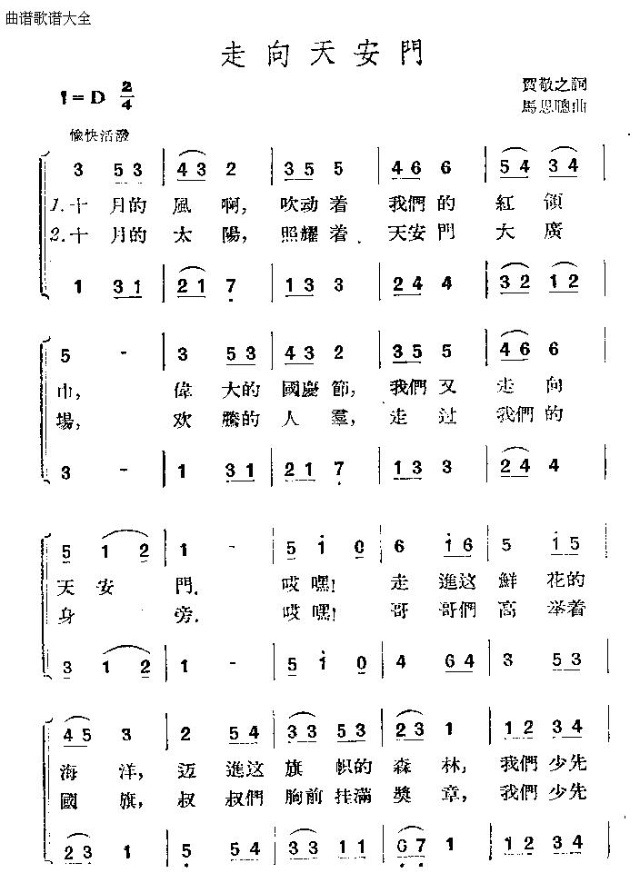 曲谱歌谱大全
走向天安門
1=D 2/4
賀敬之詞
馬思聰曲
愉快活潑
3 5 3 4 3 2 3 5 5 5 4 6 6 6 5 4 3 4
1.十月的風啊，吹动着我們的紅領
2.十月的太陽，照耀着天安門大廣
1 3 1 2 1 7 1 3 3 3 2 4 4 4 3 2 1 2
5 - 3 5 3 4 3 2 3 5 5 4 6 6
巾，偉大的國慶節，我們又走向
場，欢騰的人羣，走过我們的
3 - 1 3 1 2 1 7 1 3 3 2 4 4
5 1 2 1 - 5 i 0 6 i 6 5 i 5
天安門．哎嘿！走進这鮮花的
身旁．哎嘿！哥哥們高举着
3 1 2 1 - 5 i 0 4 6 4 3 5 3
4 5 3 2 5 4 3 3 5 3 2 3 1 1 2 3 4
海洋，迈進这旗帜的森林，我們少先
國旗，叔叔們胸前挂滿獎章，我們少先
2 3 1 5 5 4 3 3 1 1 6 7 1 1 2 3 4